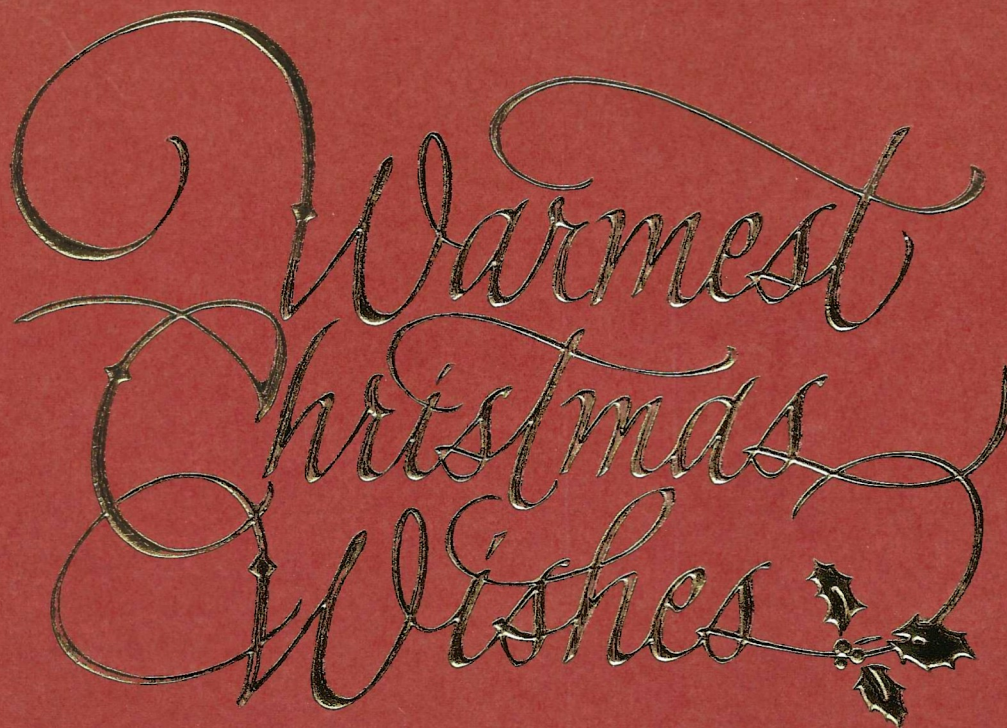 Warmest
Christmas
Wishes